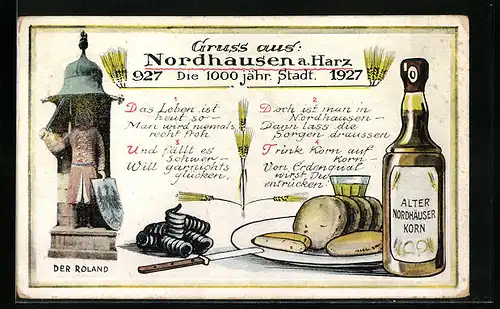 Gruss aus:
Nordhausen a. Harz
927 Die 1000 jähr. Stadt. 1927
1
Das Leben ist
heut so —
Man wird niemals
recht froh
2
Doch ist man in
Nordhausen —
Dann lass die
Sorgen draussen
3
Und fällt es
schwer —
Will garnichts
glücken,
4
Trink Korn auf
Korn —
Von Erdenqual
wirst Du
entrücken.
ALTER
NORDHÄUSER
KORN
DER ROLAND